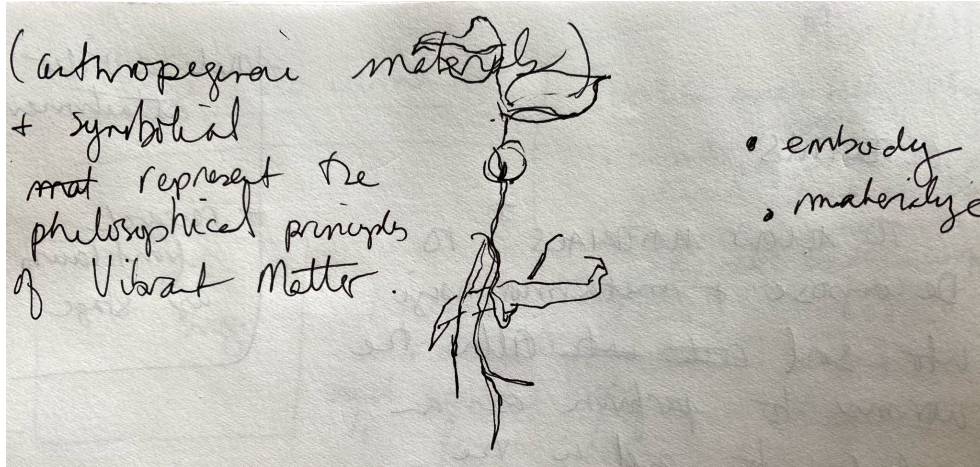 (anthropogenic materials)
+ symbolical
mat represent the
philosophical principles
of Vibrant Matter.
• embody
• materialize